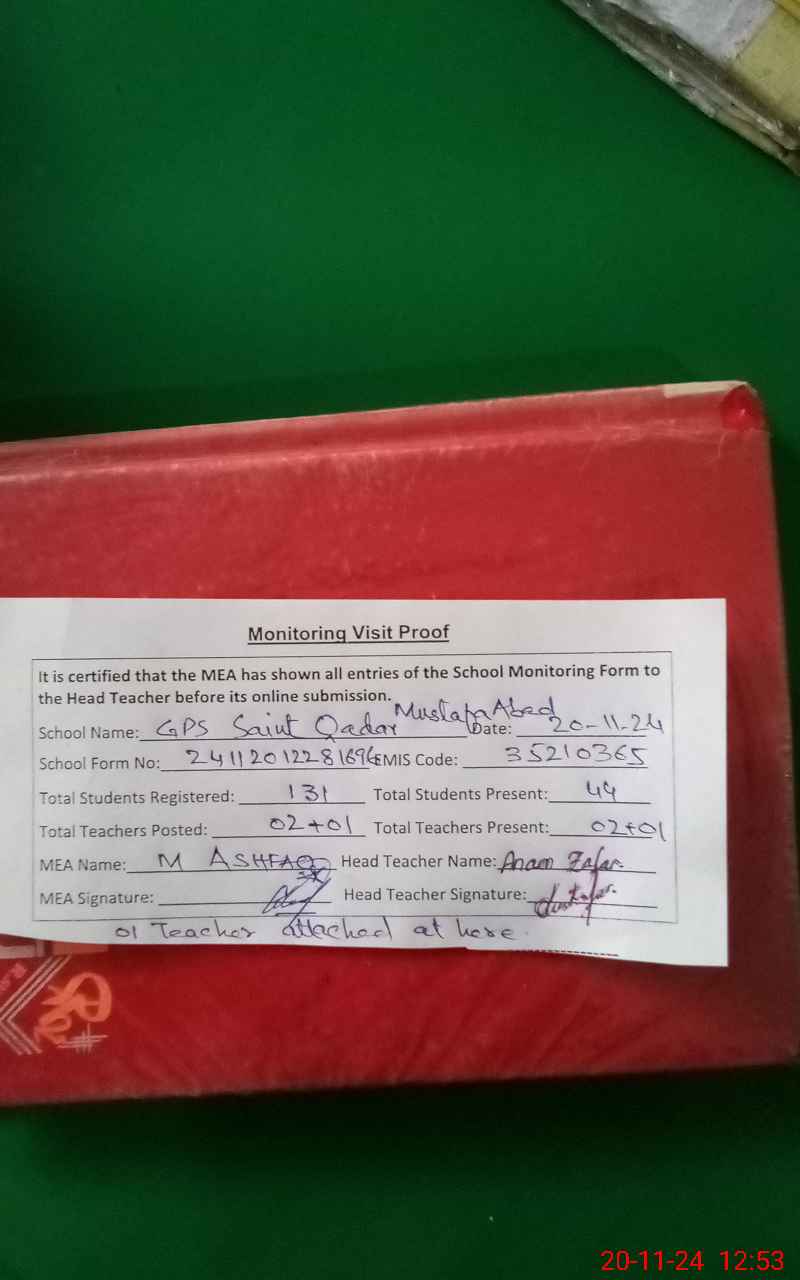 Monitoring Visit Proof
It is certified that the MEA has shown all entries of the School Monitoring Form to
the Head Teacher before its online submission.
School Name: GPS Saint Qadar Mustafa Abad Date: 20-11-24
School Form No: 241120122281696 EMIS Code: 35210365
Total Students Registered: 131 Total Students Present: 44
Total Teachers Posted: 02+01 Total Teachers Present: 02+01
MEA Name: M ASHFAQ Head Teacher Name: Anam Zafar.
MEA Signature: Head Teacher Signature:
01 Teacher attached at here.
20-11-24 12:53